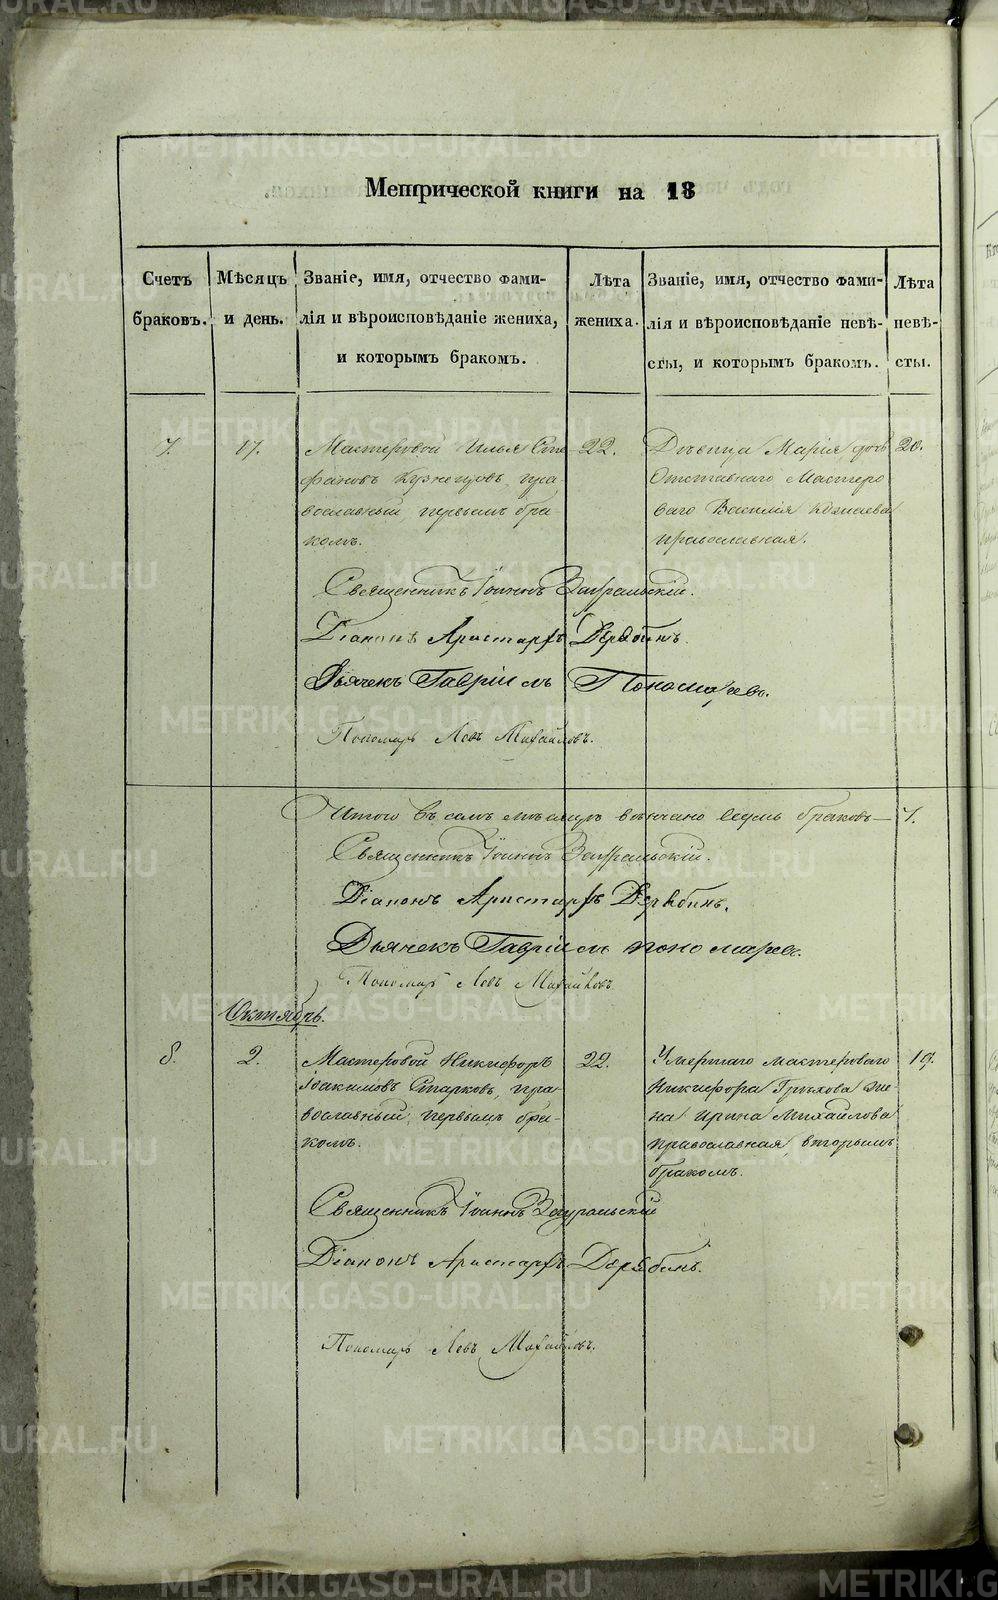 Метрической книги на 18
Счетъ браковъ.
Мѣсяцъ и день.
Званіе, имя, отчество фами-
лія и вѣроисповѣданіе жениха,
и которымъ бракомъ.
Лѣта жениха.
Званіе, имя, отчество фами-
лія и вѣроисповѣданіе невѣ-
сты, и которымъ бракомъ.
Лѣта невѣ-
сты.
7.
17.
Мастеровой Илья Сте
фановъ Кузнецовъ, пра-
вославный первымъ бра
комъ.
22.
Дѣвица Марія дочь
Отставнаго Мастеро
ваго Василія
православная.
20.
Священникъ Іоаннъ Зауральскій.
Діаконъ Аристархъ Дерябинъ.
Дьячекъ Гавріилъ Пономаревъ.
Пономарь Левъ Михайловъ.
Итого въ семъ мѣсяцѣ вѣнчано семь браковъ — 7.
Священникъ Іоаннъ Зауральскій.
Діаконъ Аристархъ Дерябинъ.
Дьячекъ Гавріилъ Пономаревъ.
Пономарь Левъ Михайловъ.
Октябрь.
8.
2.
Мастеровой Никифоръ
Іоакимовъ Старковъ, пра-
вославный, первымъ бра-
комъ.
22.
Умершаго мастероваго
Никифора Грѣхова же-
на Ирина Михайлова
православная, вторымъ
бракомъ.
19.
Священникъ Іоаннъ Зауральскій
Діаконъ Аристархъ Дерябинъ.
Пономарь Левъ Михайловъ.
METRIKI.GASO-URAL.RU